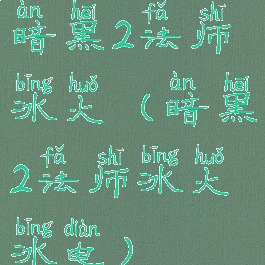 àn hēi fǎ shī
暗黑2法师
bīng huǒ àn hēi
冰火（暗黑
fǎ shī bīng huǒ
2法师冰火
bīng diàn
冰电）